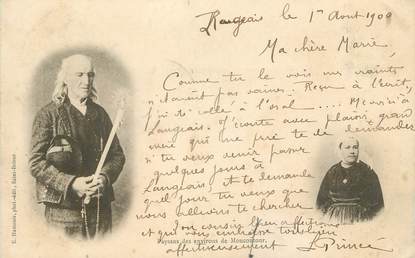 Langeais le 1er Aout 1900
Ma chère Marie,
Comme tu le vois mes craintes
n'étaient pas vaines. Reçue à l'écrit,
j'ai été collée à l'oral .... Merci à
Langeais. J'écoute avec plaisir grand'
mère qui me prie de te demander
si tu veux venir passer
quelques jours à
Langeais, et te demande
quel jour tu veux que
nous allions te chercher
bien affectueuse
et qui vous embrasse
affectueusement L Prince
Paysans des environs de Moncontour.
E. Hamonic, phot.-édit., Saint-Brieuc